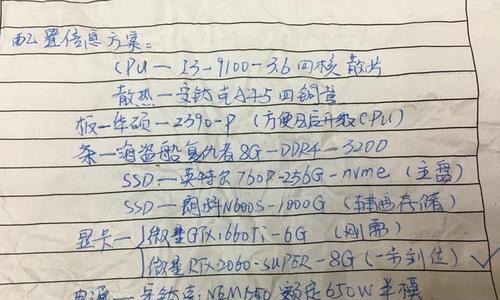 配置信息方案:
CPU — I3-9100-3.6 四核 散片
散热 — 安钛克 A45 四铜管
板 — 华硕 — Z390-P (方便日后升级CPU)
条 — 海盗船 复仇者 8G-DDR4-3200
SSD — 英特尔 760P-256G-nvme (主盘)
SSD — 朗科N600S-1000G (辅助存储)
显卡 — 微星GTX1660Ti-6G (刚需)
微星 RTX-2060-SUPER-8G (一步到位)
电源 — 安钛克: NE650 额定650W 半模